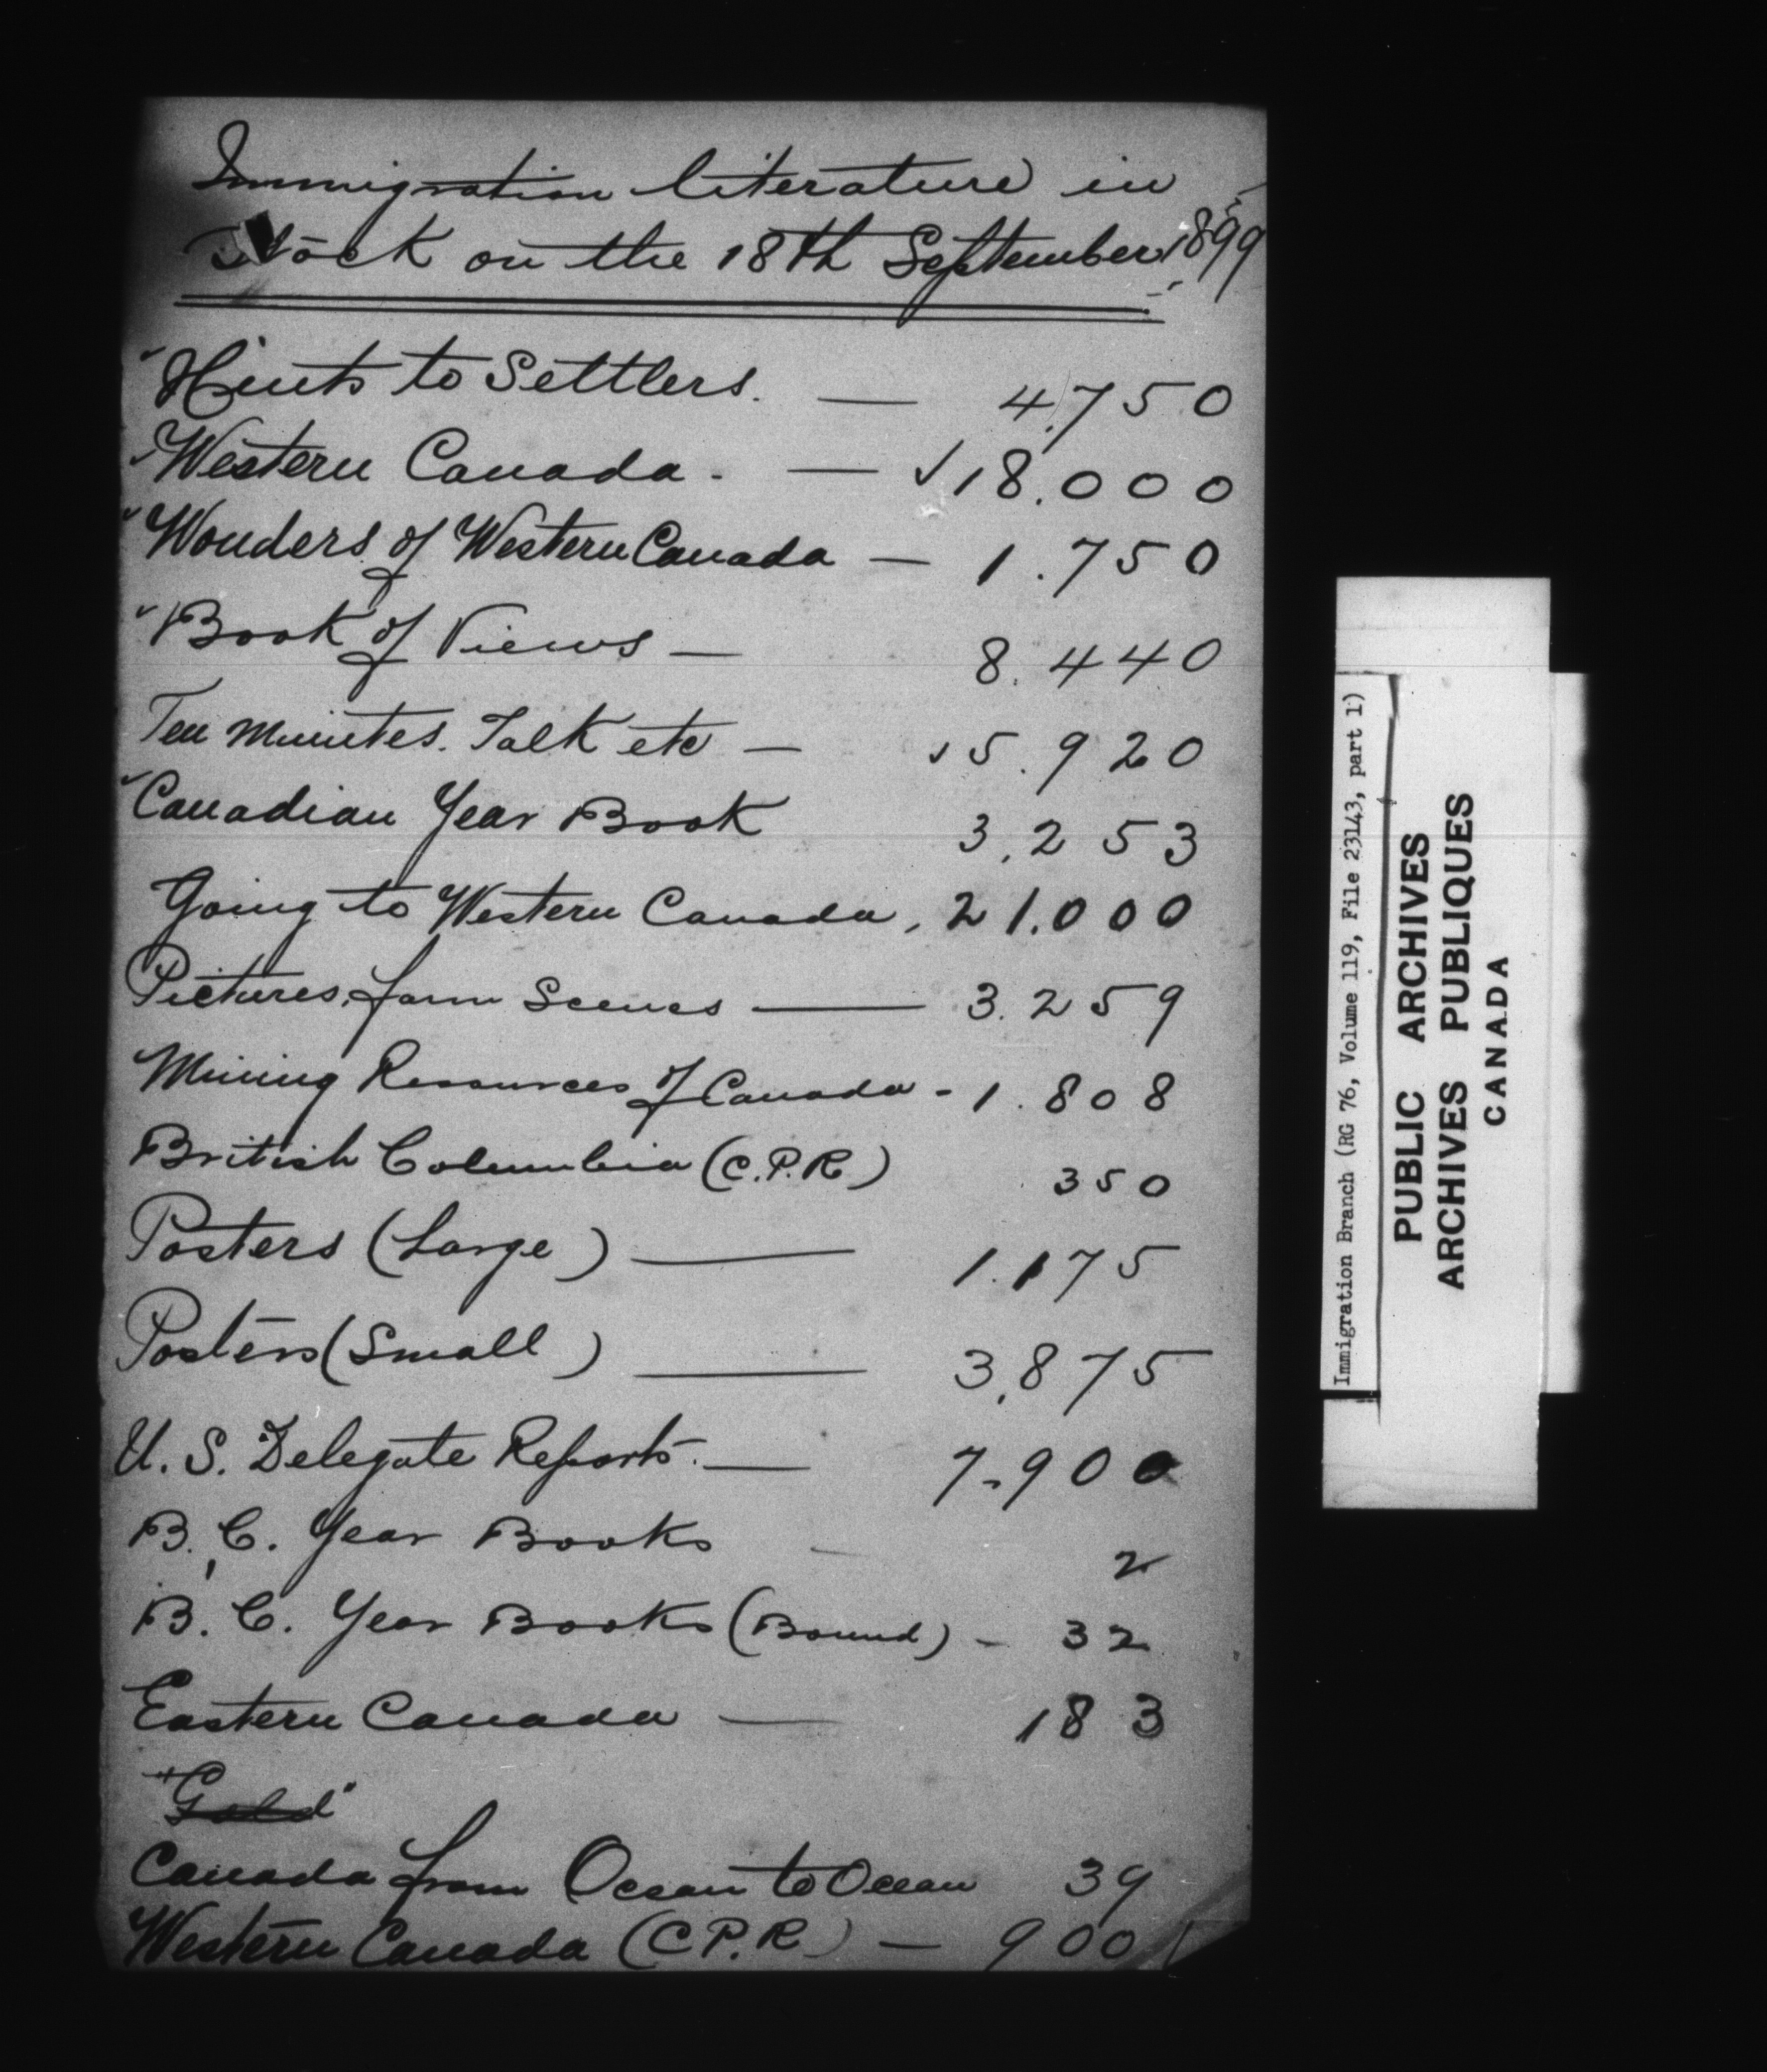 Immigration literature in
Stock on the 18th September, 1899
Hints to Settlers. — 4,750
Western Canada. — 18.000
Wonders of Western Canada — 1.750
Book of Views — 8.440
Ten Minutes. Talk etc — 5.920
Canadian Year Book 3,253
Going to Western Canada, 21.000
Pictures, farm Scenes — 3.259
Mining Resources of Canada - 1.808
British Columbia (C.P.R) 350
Posters (Large) — 1.175
Posters (Small) — 3,875
U. S. Delegate Reports. — 7.900
B. C. Year Books - 2
B. C. Year Books (Bound) - 32
Eastern Canada — 183
"Gold"
Canada from Ocean to Ocean 39
Western Canada (C P.R) — 900
Immigration Branch (RG 76, Volume 119, File 23143, part 1)
PUBLIC ARCHIVES
ARCHIVES PUBLIQUES
CANADA